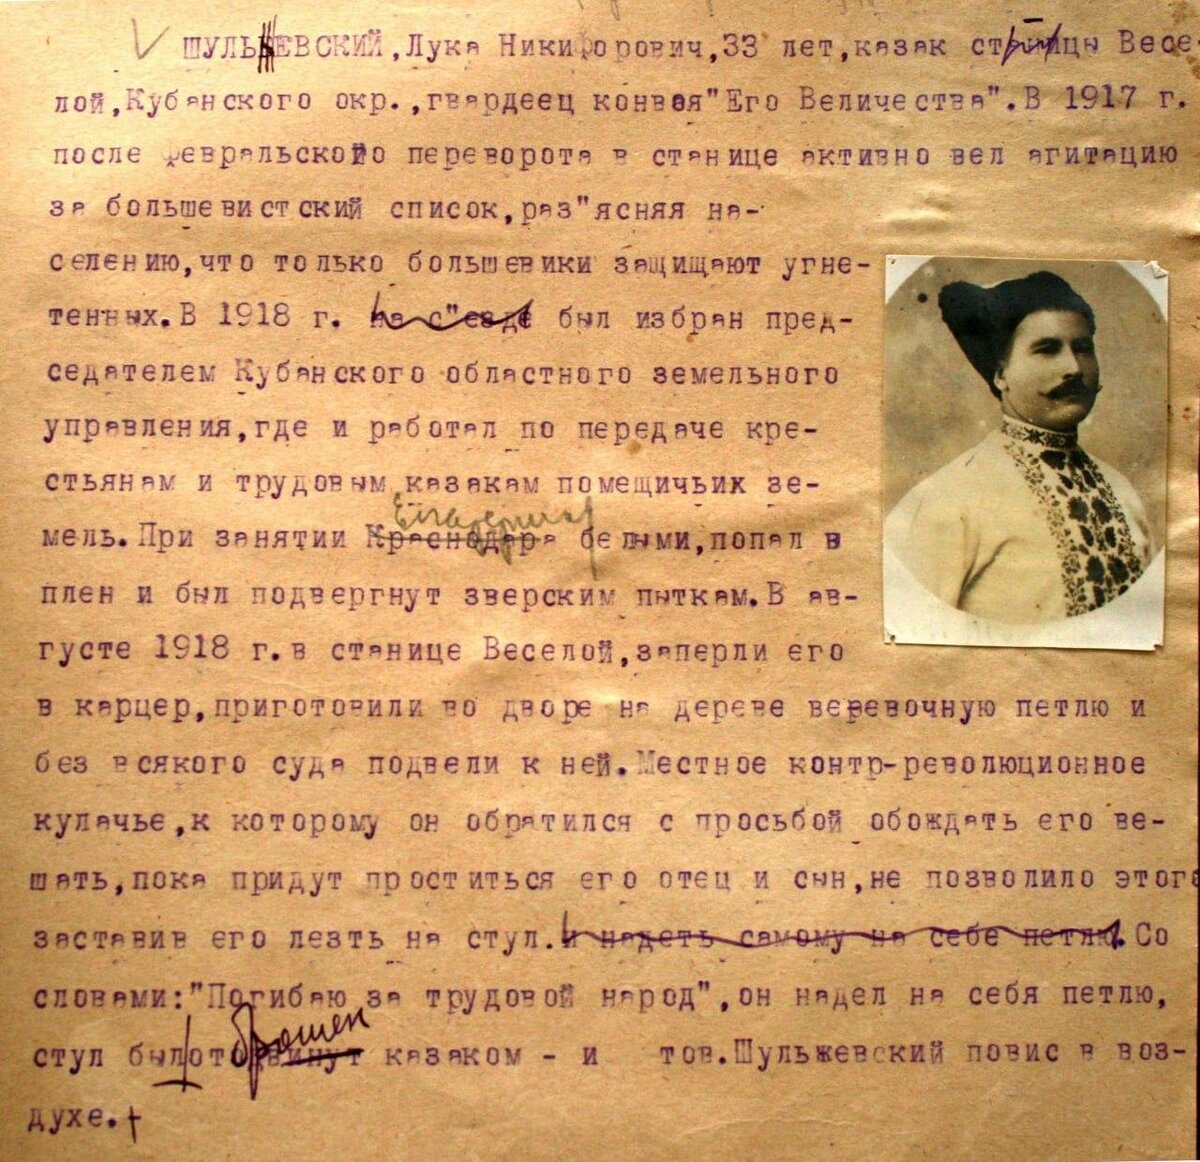 ШУЛЬЖЕВСКИЙ,Лука Никифорович,33 лет,казак станицы Весе-
лой,Кубанского окр.,гвардеец конвоя"Его Величества".В 1917 г.
после февральского переворота в станице активно вел агитацию
за большевистский список,раз"ясняя на-
селению,что только большевики защищают угне-
тенных.В 1918 г. на с"езде был избран пред-
седателем Кубанского областного земельного
управления,где и работал по передаче кре-
стьянам и трудовым казакам помещичьих зе-
Екатеринодара
мель.При занятии Краснодара белыми,попал в
плен и был подвергнут зверским пыткам.В ав-
густе 1918 г.в станице Веселой,заперли его
в карцер,приготовили во дворе на дереве веревочную петлю и
без всякого суда подвели к ней.Местное контр-революционное
кулачье,к которому он обратился с просьбой обождать его ве-
шать,пока придут проститься его отец и сын,не позволило этого
заставив его лезть на стул.и надеть самому на себе петлю.Со
словами:"Погибаю за трудовой народ",он надел на себя петлю,
брошен
стул былотодвинут казаком - и тов.Шульжевский повис в воз-
духе.